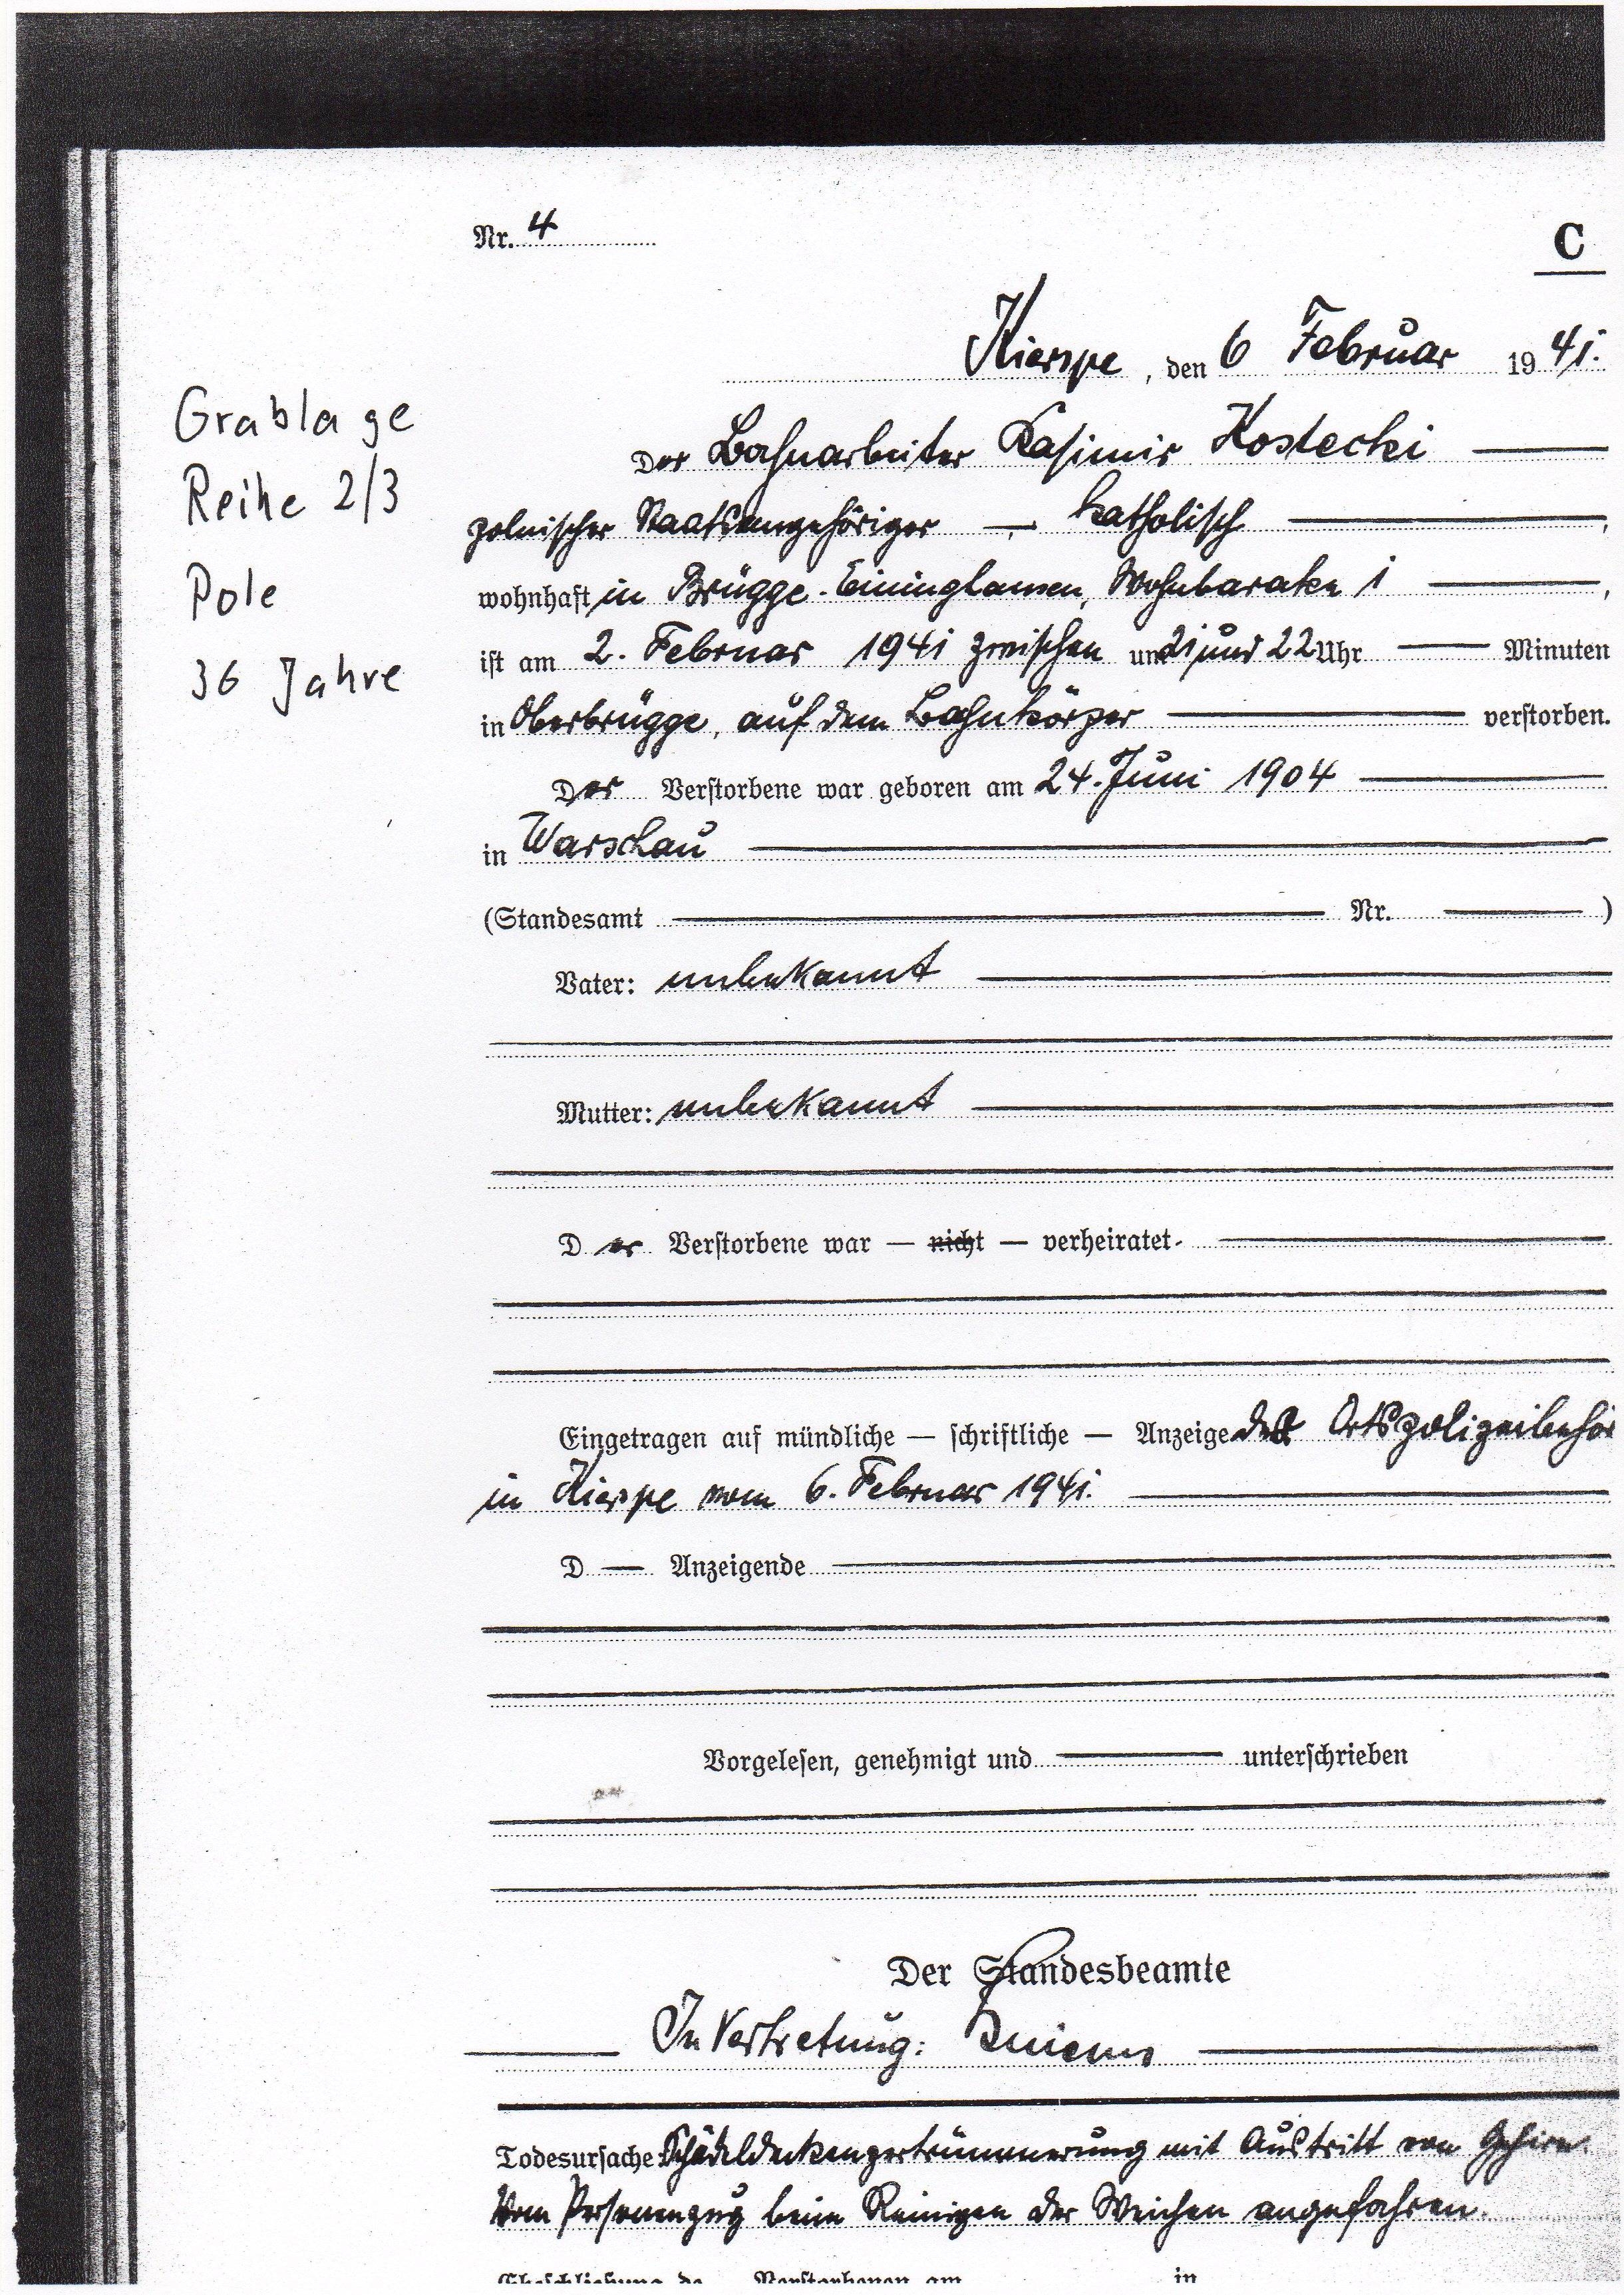 Nr. 4
C
Kierspe, den 6 Februar 1941.
Grablage
Reihe 2/3
Pole
36 Jahre
Der Bahnarbeiter Kasimir Kostecki
polnischer Staatsangehöriger —, katholisch,
wohnhaft in Brügge-, Wohnbarake 1,
ist am 2. Februar 1941 zwischen um 21 und 22 Uhr — Minuten
in Oberbrügge, auf dem Bahnkörper — verstorben.
Der Verstorbene war geboren am 24. Juni 1904
in Warschau
(Standesamt — Nr. — )
Vater: unbekannt
Mutter: unbekannt
Der Verstorbene war — nicht — verheiratet.
Eingetragen auf mündliche — schriftliche — Anzeige der Ortspolizeibehör
in Kierspe vom 6. Februar 1941.
D — Anzeigende
Vorgelesen, genehmigt und — unterschrieben
Der Standesbeamte
In Vertretung:
Todesursache Schädeldeckenzertrümmerung mit Austritt von Gehirn.
Vom Personenzug beim Reinigen der Weichen angefahren.
Eheschließung de Verstorbenen am in